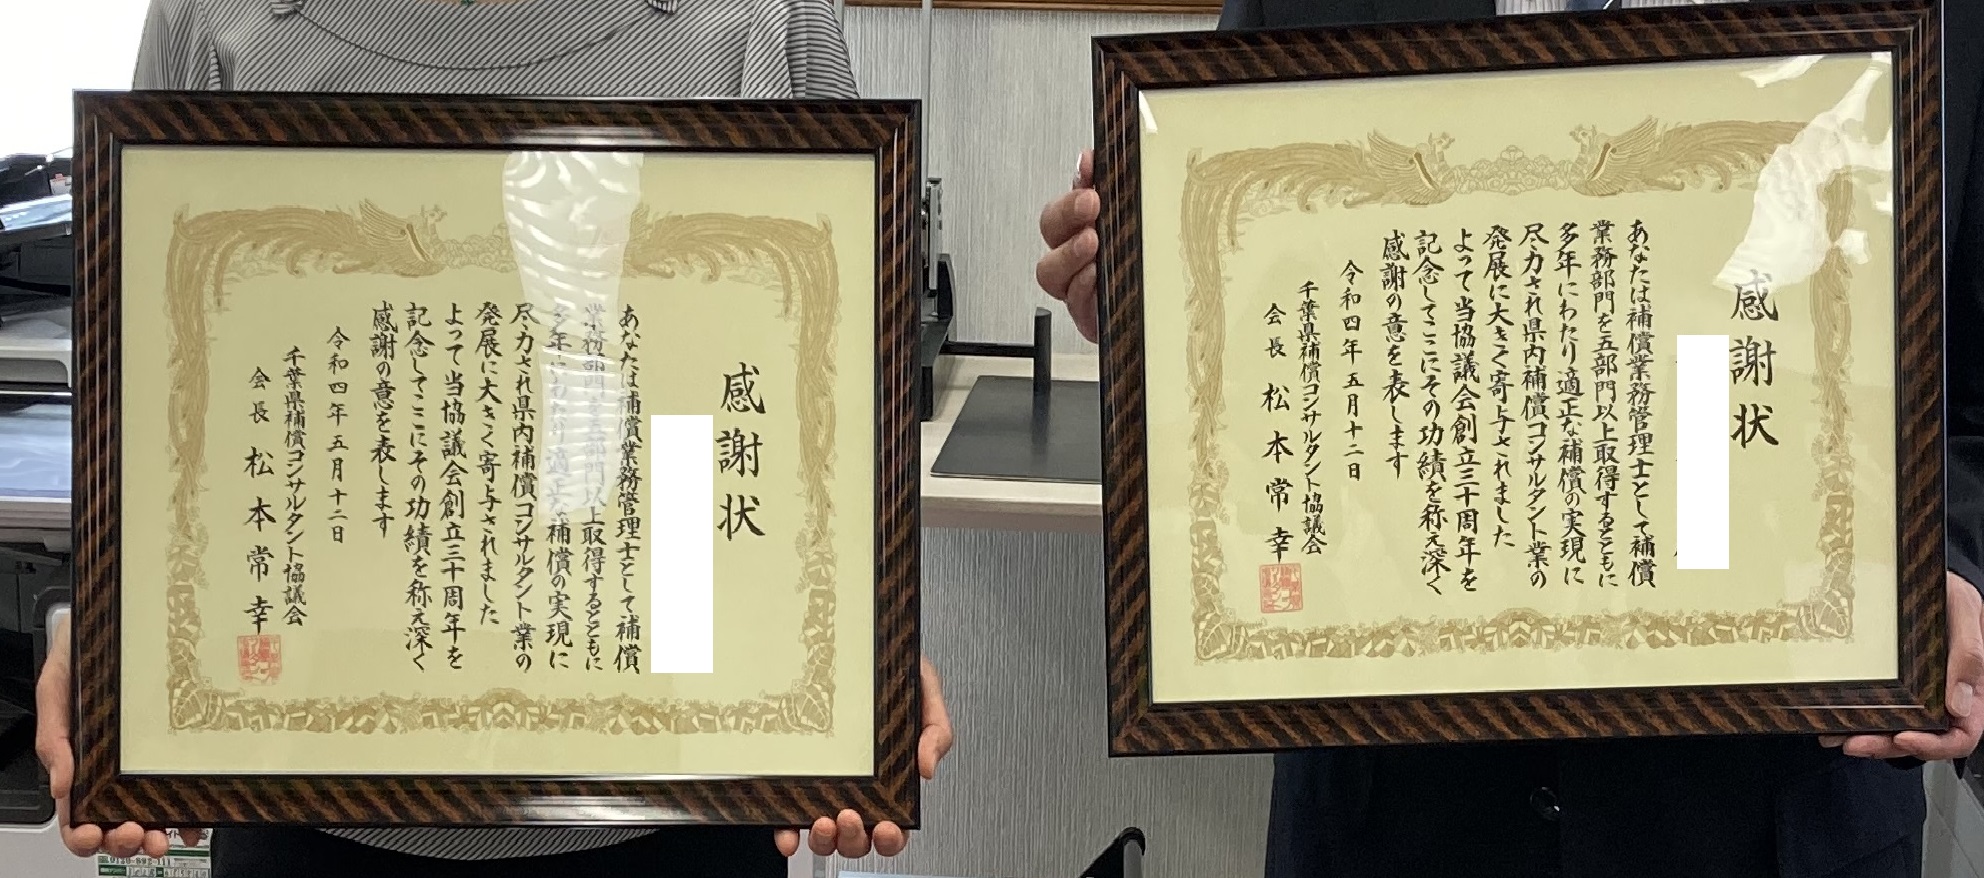 感謝状
あなたは補償業務管理士として補償
業務部門を五部門以上取得するとともに
多年にわたり適正な補償の実現に
尽力され県内補償コンサルタント業の
発展に大きく寄与されました
よって当協議会創立三十周年を
記念してここにその功績を称え深く
感謝の意を表します
令和四年五月十二日
千葉県補償コンサルタント協議会
会長 松本常幸
感謝状
あなたは補償業務管理士として補償
業務部門を五部門以上取得するとともに
多年にわたり適正な補償の実現に
尽力され県内補償コンサルタント業の
発展に大きく寄与されました
よって当協議会創立三十周年を
記念してここにその功績を称え深く
感謝の意を表します
令和四年五月十二日
千葉県補償コンサルタント協議会
会長 松本常幸